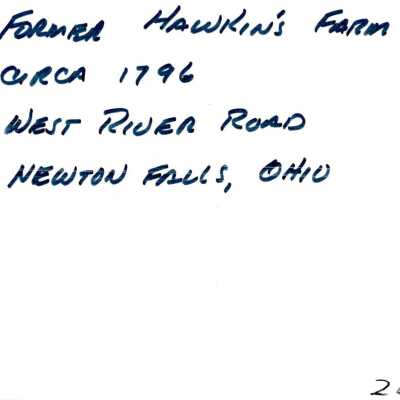 FORMER HAWKIN'S FARM
CIRCA 1796
WEST RIVER ROAD
NEWTON FALLS, OHIO